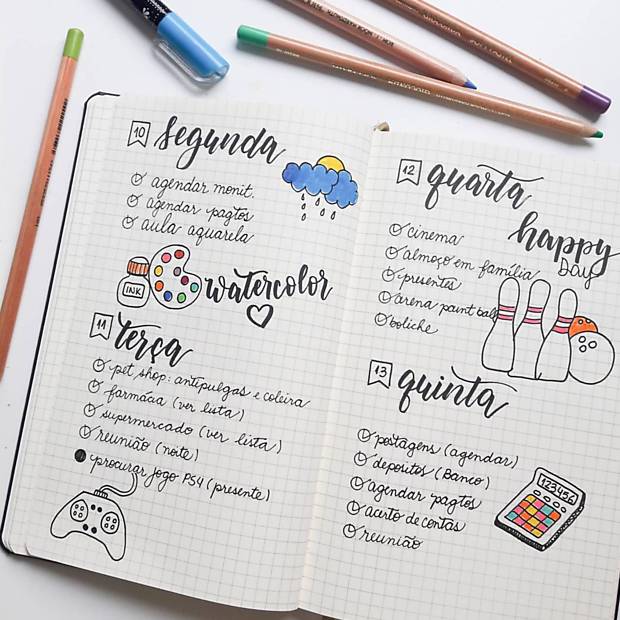 10 segunda
agendar monit.
agendar pagtos
aula aquarela
INK
watercolor
11 terça
pet shop: antipulgas e coleira
farmácia (ver lista)
supermercado (ver lista)
reunião (noite)
procurar jogo PS4 (presente)
12 quarta
happy
DAY
cinema
almoço em família
presentes
arena paint ball
boliche
13 quinta
postagens (agendar)
depositos (Banco)
agendar pagtos
acerto de contas
reunião
123456